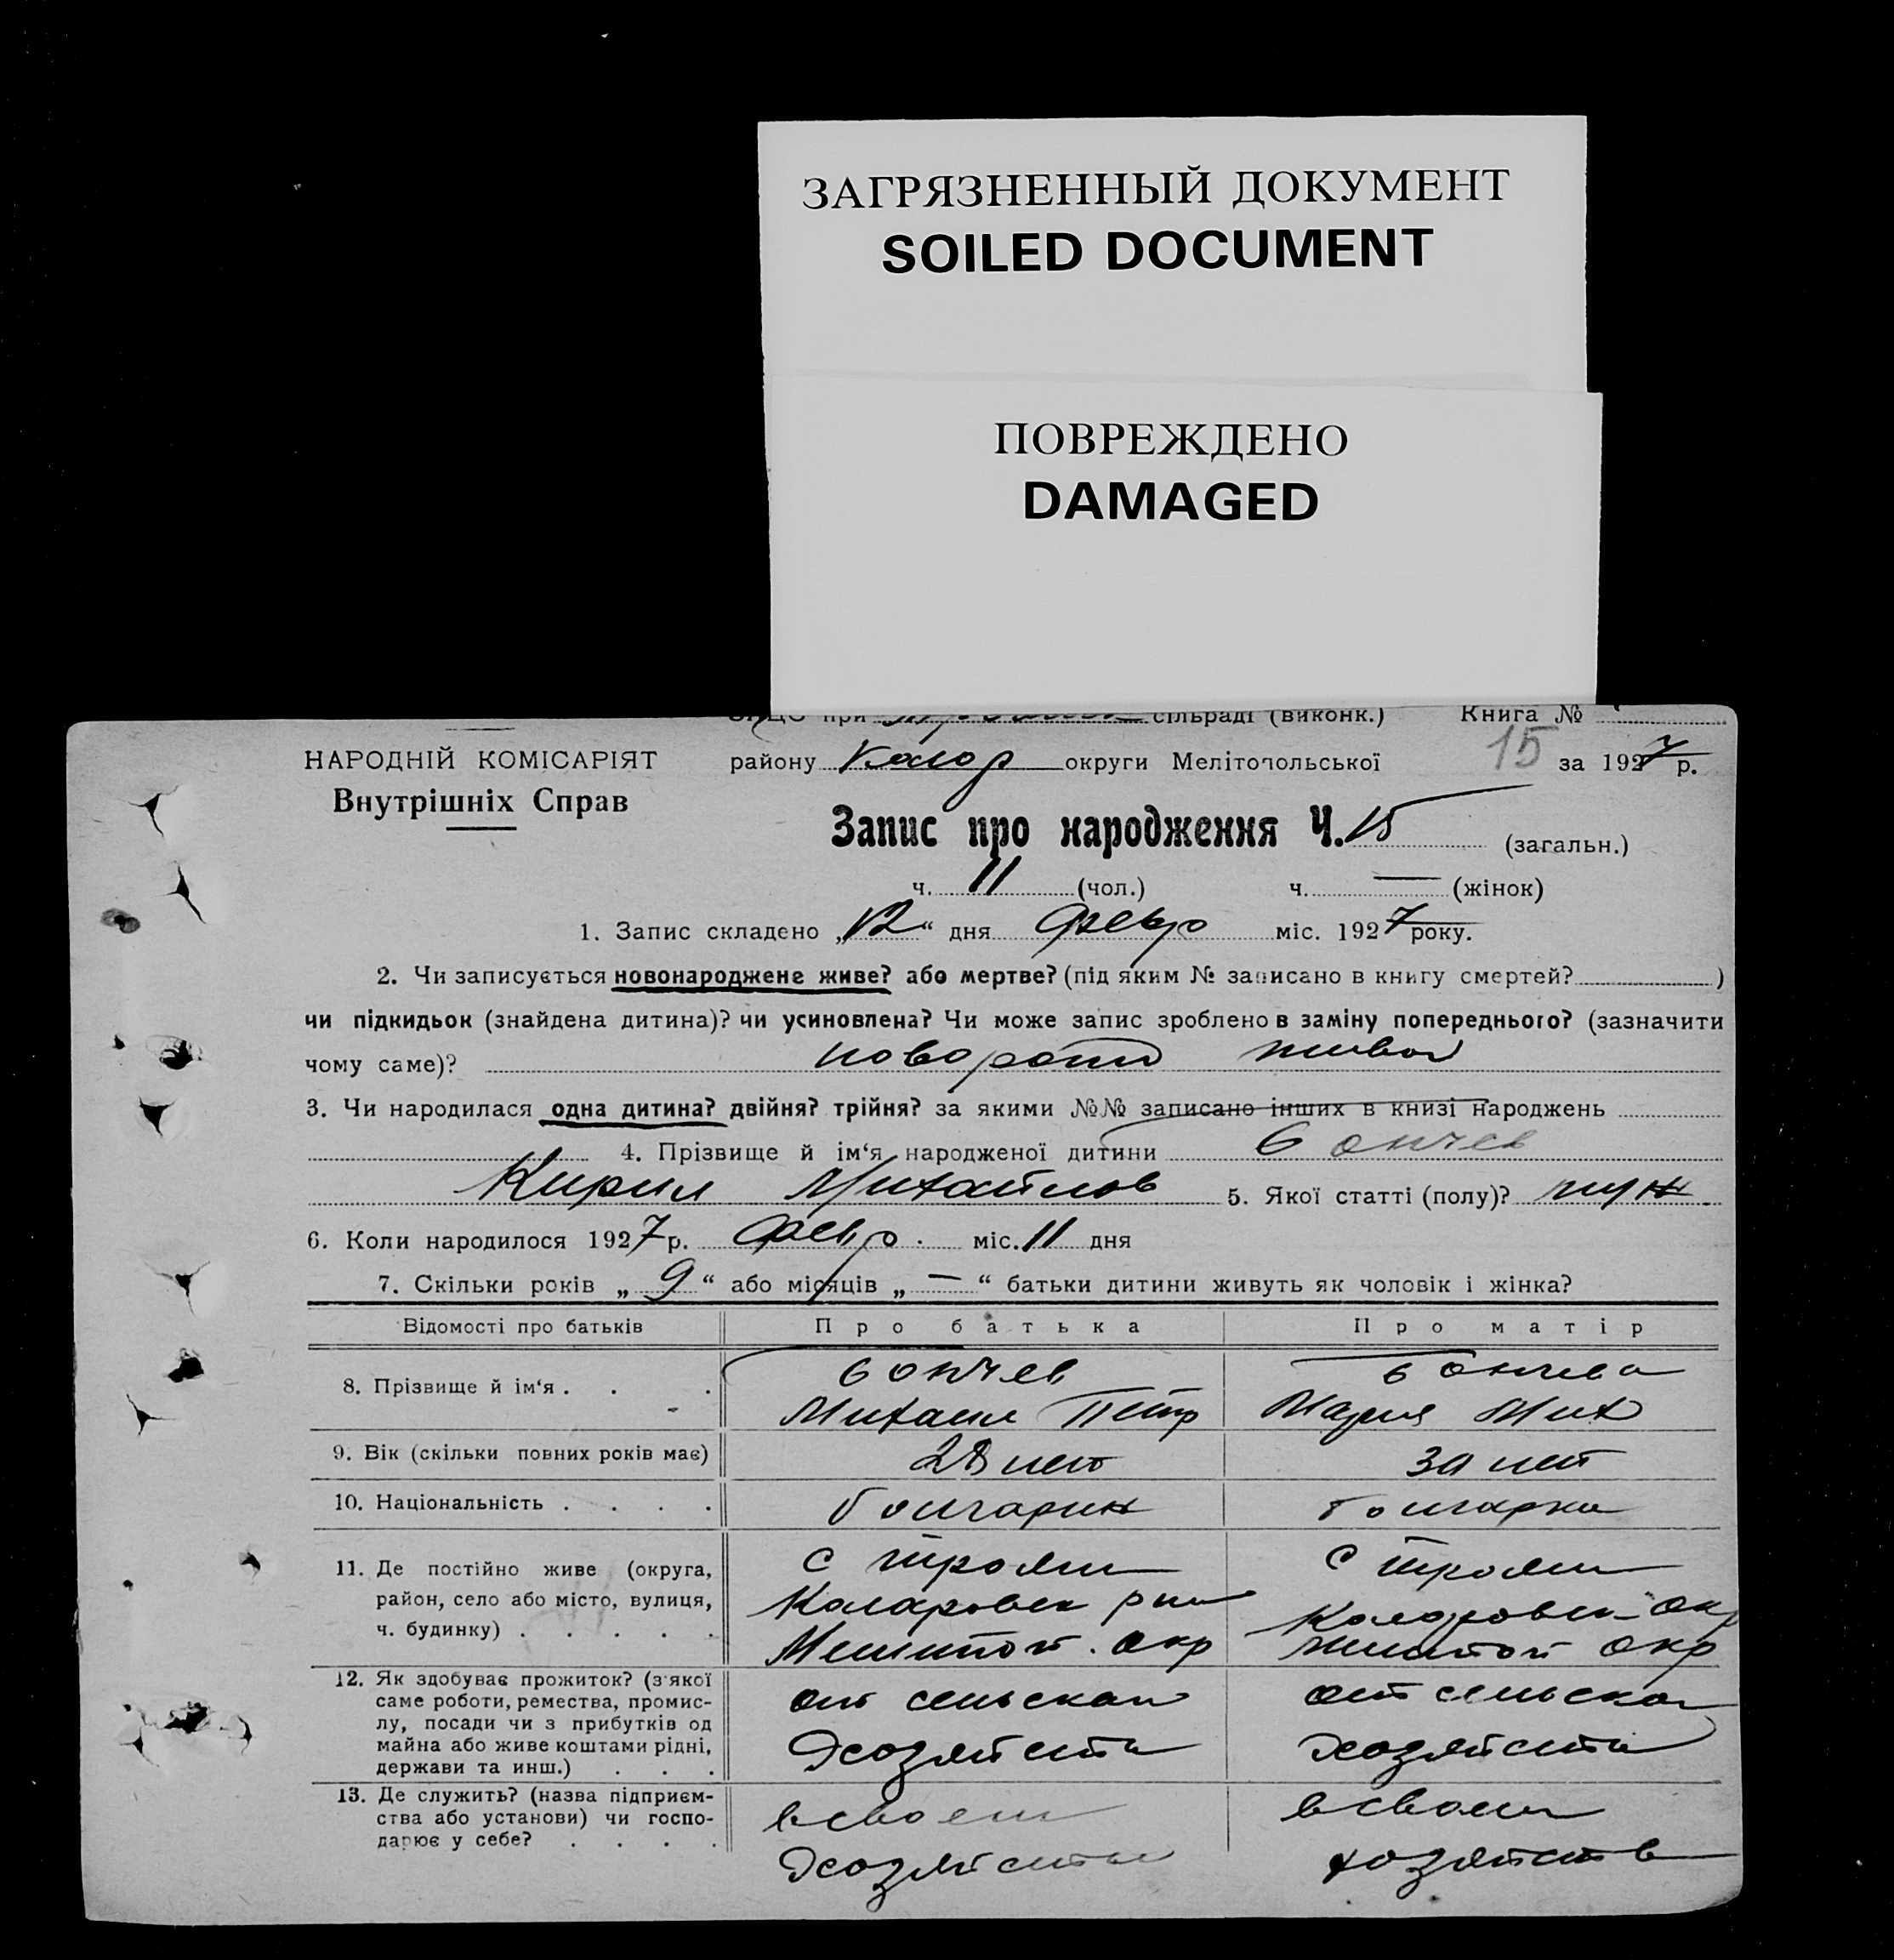 ЗАГРЯЗНЕННЫЙ ДОКУМЕНТ
SOILED DOCUMENT
ПОВРЕЖДЕНО
DAMAGED
при сільраді (виконк.) Книга №
НАРОДНІЙ КОМІСАРІЯТ
Внутрішніх Справ
району Колор округи Мелітопольської 15 за 1927 р.
Запис про народження Ч. 15 (загальн.)
ч. 11 (чол.) ч. — (жінок)
1. Запис складено „12“ дня Февр міс. 1927 року.
2. Чи записується новонароджене живе? або мертве? (під яким № записано в книгу смертей? )
чи підкидьок (знайдена дитина)? чи усиновлена? Чи може запис зроблено в заміну попереднього? (зазначити
чому саме)? новорожд живой
3. Чи народилася одна дитина? двійня? трійня? за якими №№ записано інших в книзі народжень
4. Прізвище й ім‘я народженої дитини Бончев
Кирил Михайлов 5. Якої статті (полу)? муж
6. Коли народилося 1927 р. Февр. міс. 11 дня
7. Скільки років „ 9 “ або місяців „ — “ батьки дитини живуть як чоловік і жінка?
Відомості про батьків Про батька Про матір
8. Прізвище й ім‘я . . . Бончев Бончева
Михаил Петр Мария Мих
9. Вік (скільки повних років має) 28 лет лет
10. Національність . . . . болгарин болгарка
11. Де постійно живе (округа, район, село або місто, вулиця, ч. будинку) . . . . .
с Трояни с Трояни
Коларовск рна Коларовск окр
Мелитоп. окр Мелитоп окр
12. Як здобуває прожиток? (з якої
саме роботи, ремества, промис-
лу, посади чи з прибутків од
майна або живе коштами рідні,
держави та инш.) . . .
от сельскаго от сельского
Хозяйства хозяйства
13. Де служить? (назва підприєм-
ства або установи) чи госпо-
дарює у себе? . . . .
в своем в своем
Хозяйстве хозяйстве